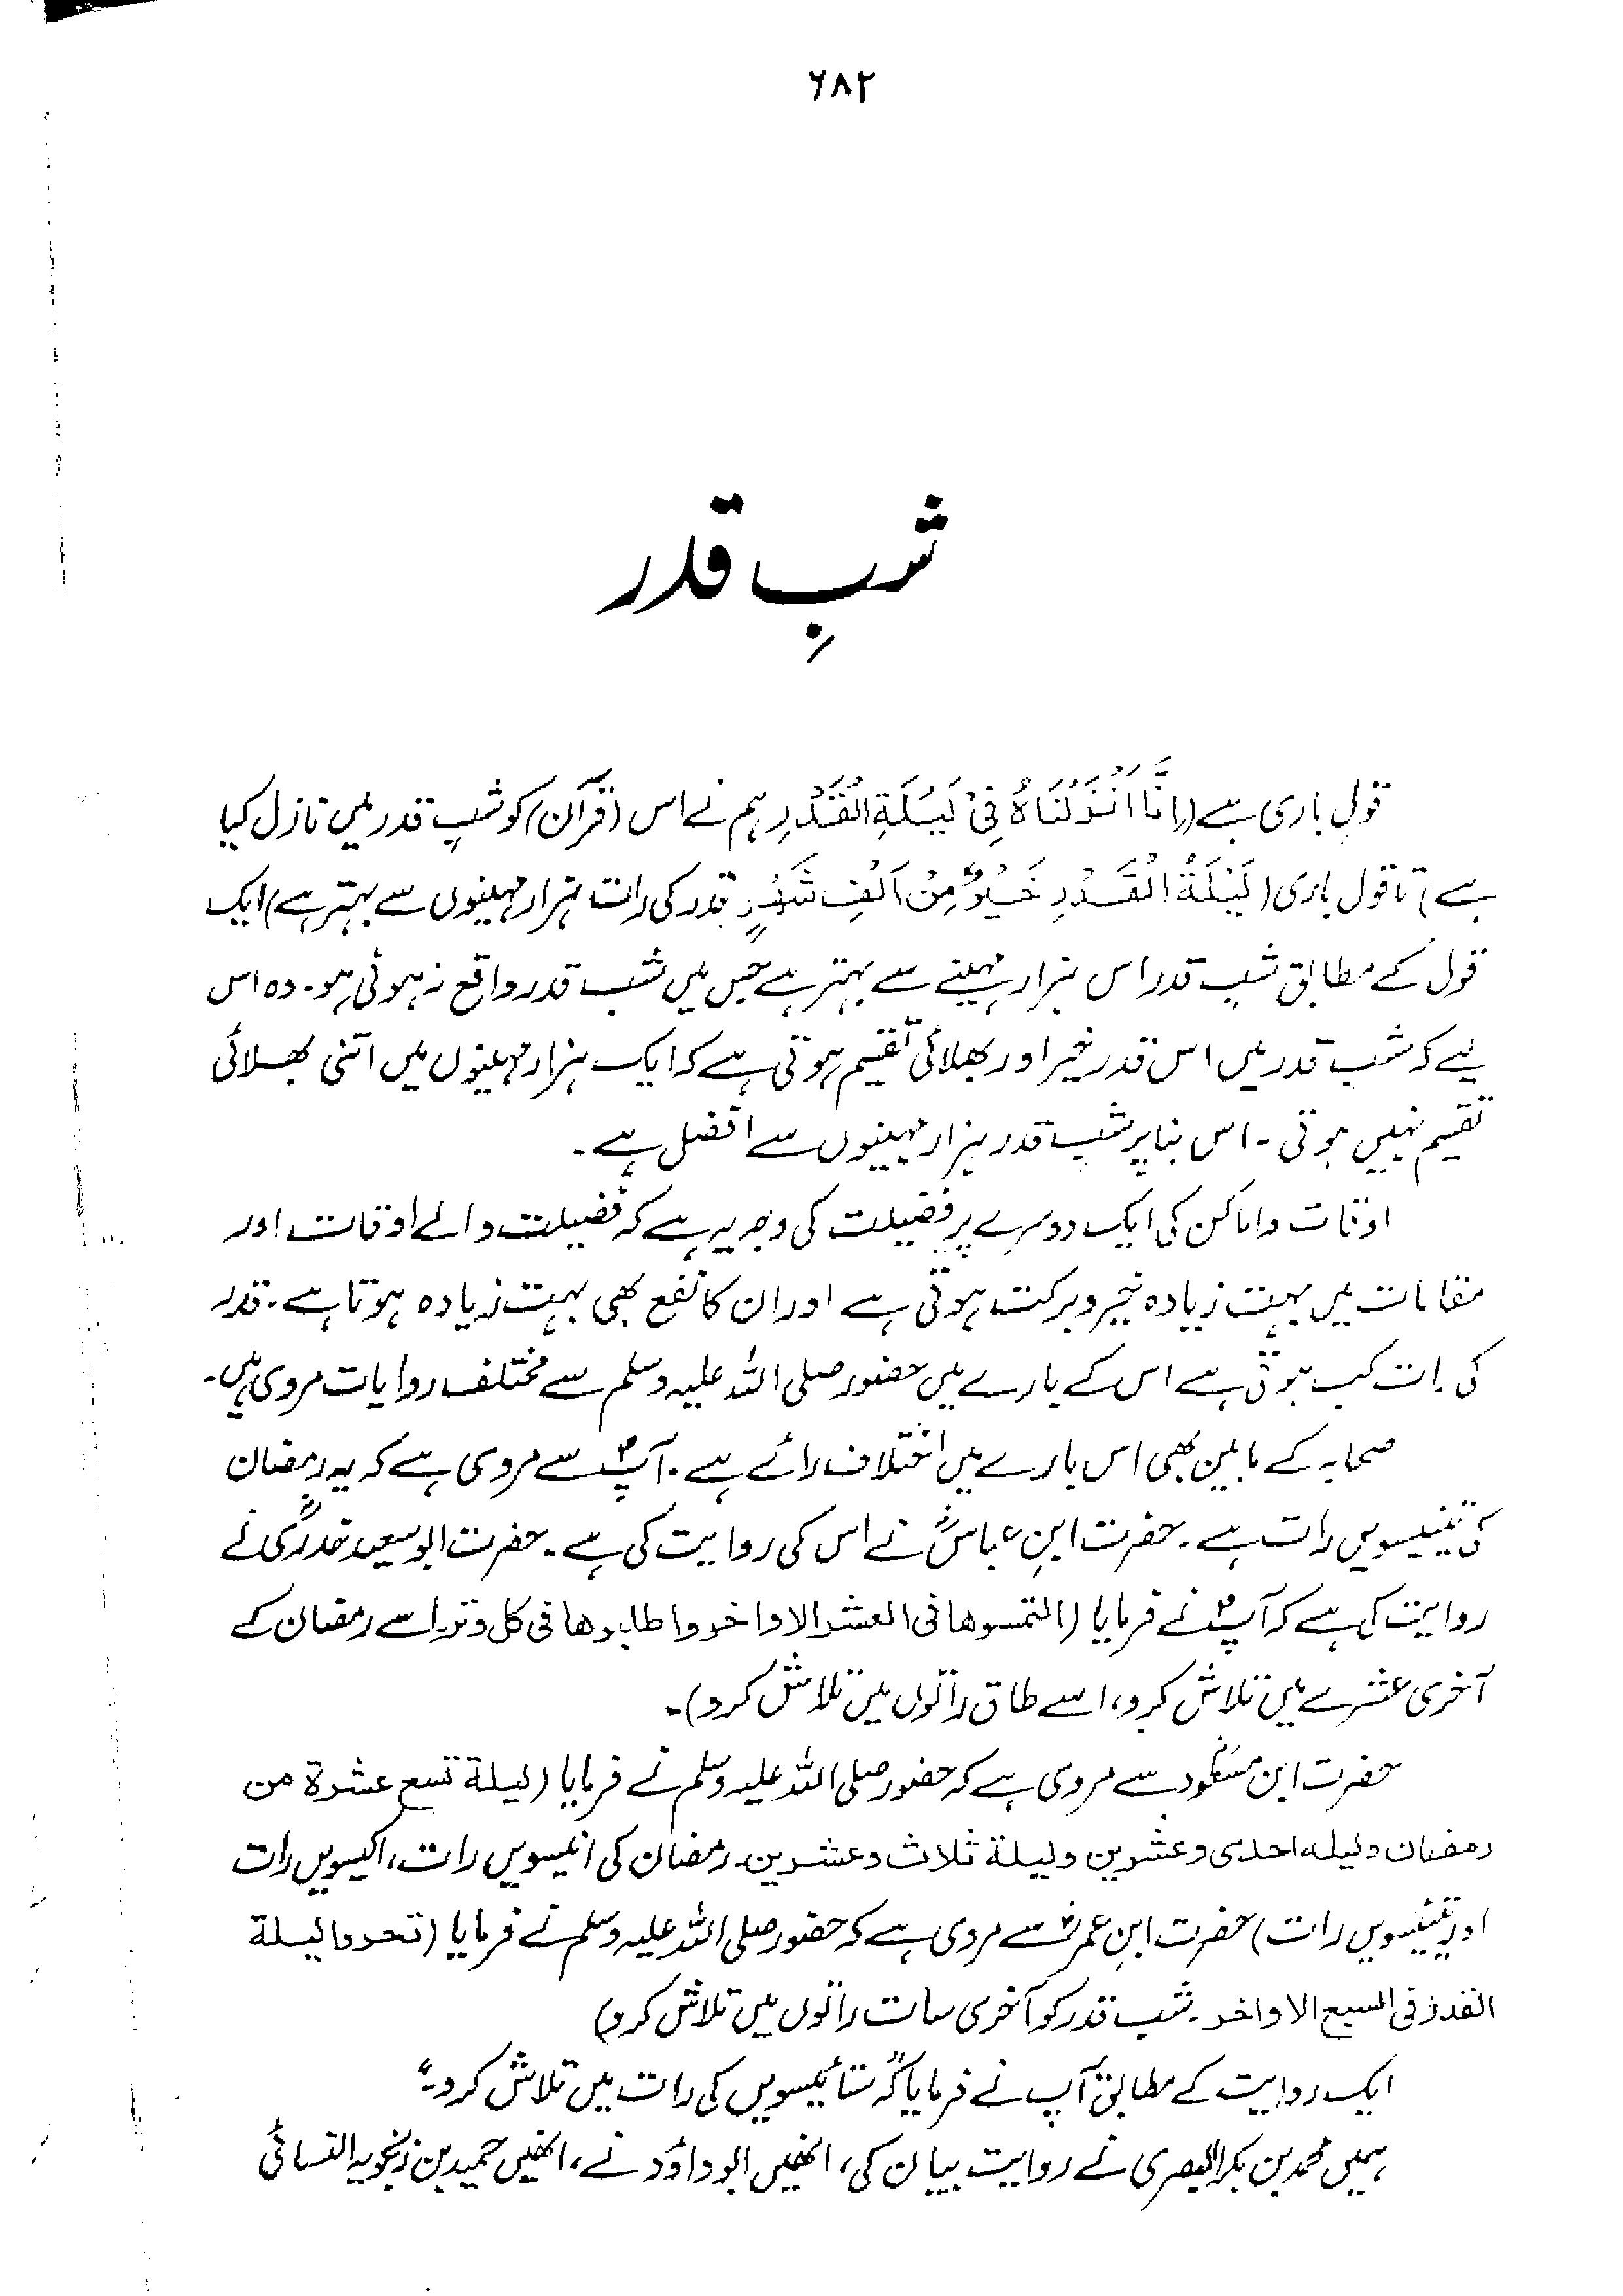 ۶۸۲
شبِ قدر
قول باری ہے (اِنَّا اَنْزَلْنَاهُ فِیْ لَیْلَةِ الْقَدْرِ ہم نے اس (قرآن) کو شبِ قدر میں نازل کیا
ہے) تا قول باری (لَیْلَةُ الْقَدْرِ خَیْرٌ مِنْ اَلْفِ شَهْرٍ قدر کی رات ہزار مہینوں سے بہتر ہے) ایک
قول کے مطابق شبِ قدر اس ہزار مہینے سے بہتر ہے جس میں شب قدر واقع نہ ہوئی ہو۔ وہ اس
لیے کہ شب قدر میں اس قدر خیر اور بھلائی تقسیم ہوتی ہے کہ ایک ہزار مہینوں میں اتنی بھلائی
تقسیم نہیں ہوتی۔ اس بنا پر شب قدر ہزار مہینوں سے افضل ہے۔
اوقات و اماکن کی ایک دوسرے پر فضیلت کی وجہ یہ ہے کہ فضیلت والے اوقات اور
مقامات میں بہت زیادہ خیر و برکت ہوتی ہے اور ان کا نفع بھی بہت زیادہ ہوتا ہے۔ قدر
کی رات کب ہوتی ہے اس کے بارے میں حضور صلی اللہ علیہ وسلم سے مختلف روایات مروی ہیں۔
صحابہ کے مابین بھی اس بارے میں اختلاف رائے ہے۔ آپؐ سے مروی ہے کہ یہ رمضان
کی تئیسویں رات ہے۔ حضرت ابنِ عباسؓ نے اس کی روایت کی ہے۔ حضرت ابوسعید خدریؓ نے
روایت کی ہے کہ آپؐ نے فرمایا (التمسوها فی العشر الاواخر واطلبوها فی کل وتر۔ اسے رمضان کے
آخری عشرے میں تلاش کرو، اسے طاق راتوں میں تلاش کرو)۔
حضرت ابن مسعودؓ سے مروی ہے کہ حضور صلی اللہ علیہ وسلم نے فرمایا (لیلة تسع عشرة من
رمضان ولیلہ احدی وعشرین ولیلة ثلاث وعشرین۔ رمضان کی انیسویں رات، اکیسویں رات
اور تئیسویں رات) حضرت ابنِ عمرؓ سے مروی ہے کہ حضور صلی اللہ علیہ وسلم نے فرمایا (تحروا لیلة
القدر فی السبع الاواخر۔ شب قدر کو آخری سات راتوں میں تلاش کرو)
ایک روایت کے مطابق آپ نے فرمایا کہ "ستائیسویں کی رات میں تلاش کرو۔"
ہمیں محمد بن بکر البصری نے روایت بیان کی، انھیں ابو داؤد نے، انھیں حمید بن زنجویہ النسائی